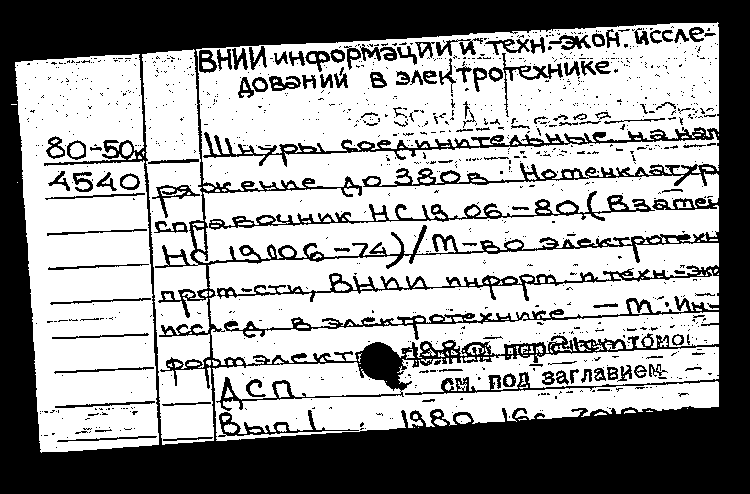 ВНИИ информации и техн.-экон. иссле-
дований в электротехнике.
80-50к Шнуры соединительные на нап
4540 ряжение до 380в. Номенклатур
справочник НС 19.06.-80.(Взамен
НС 19.006-74)/М-во электротехн
пром-сти, ВНИИ информ. и техн.-эко
исслед. в электротехнике. — М.: Ин-
формэлектро 1980
полный перечень томов
ДСП. см. под заглавием
Вып. 1. 1980. 16с.